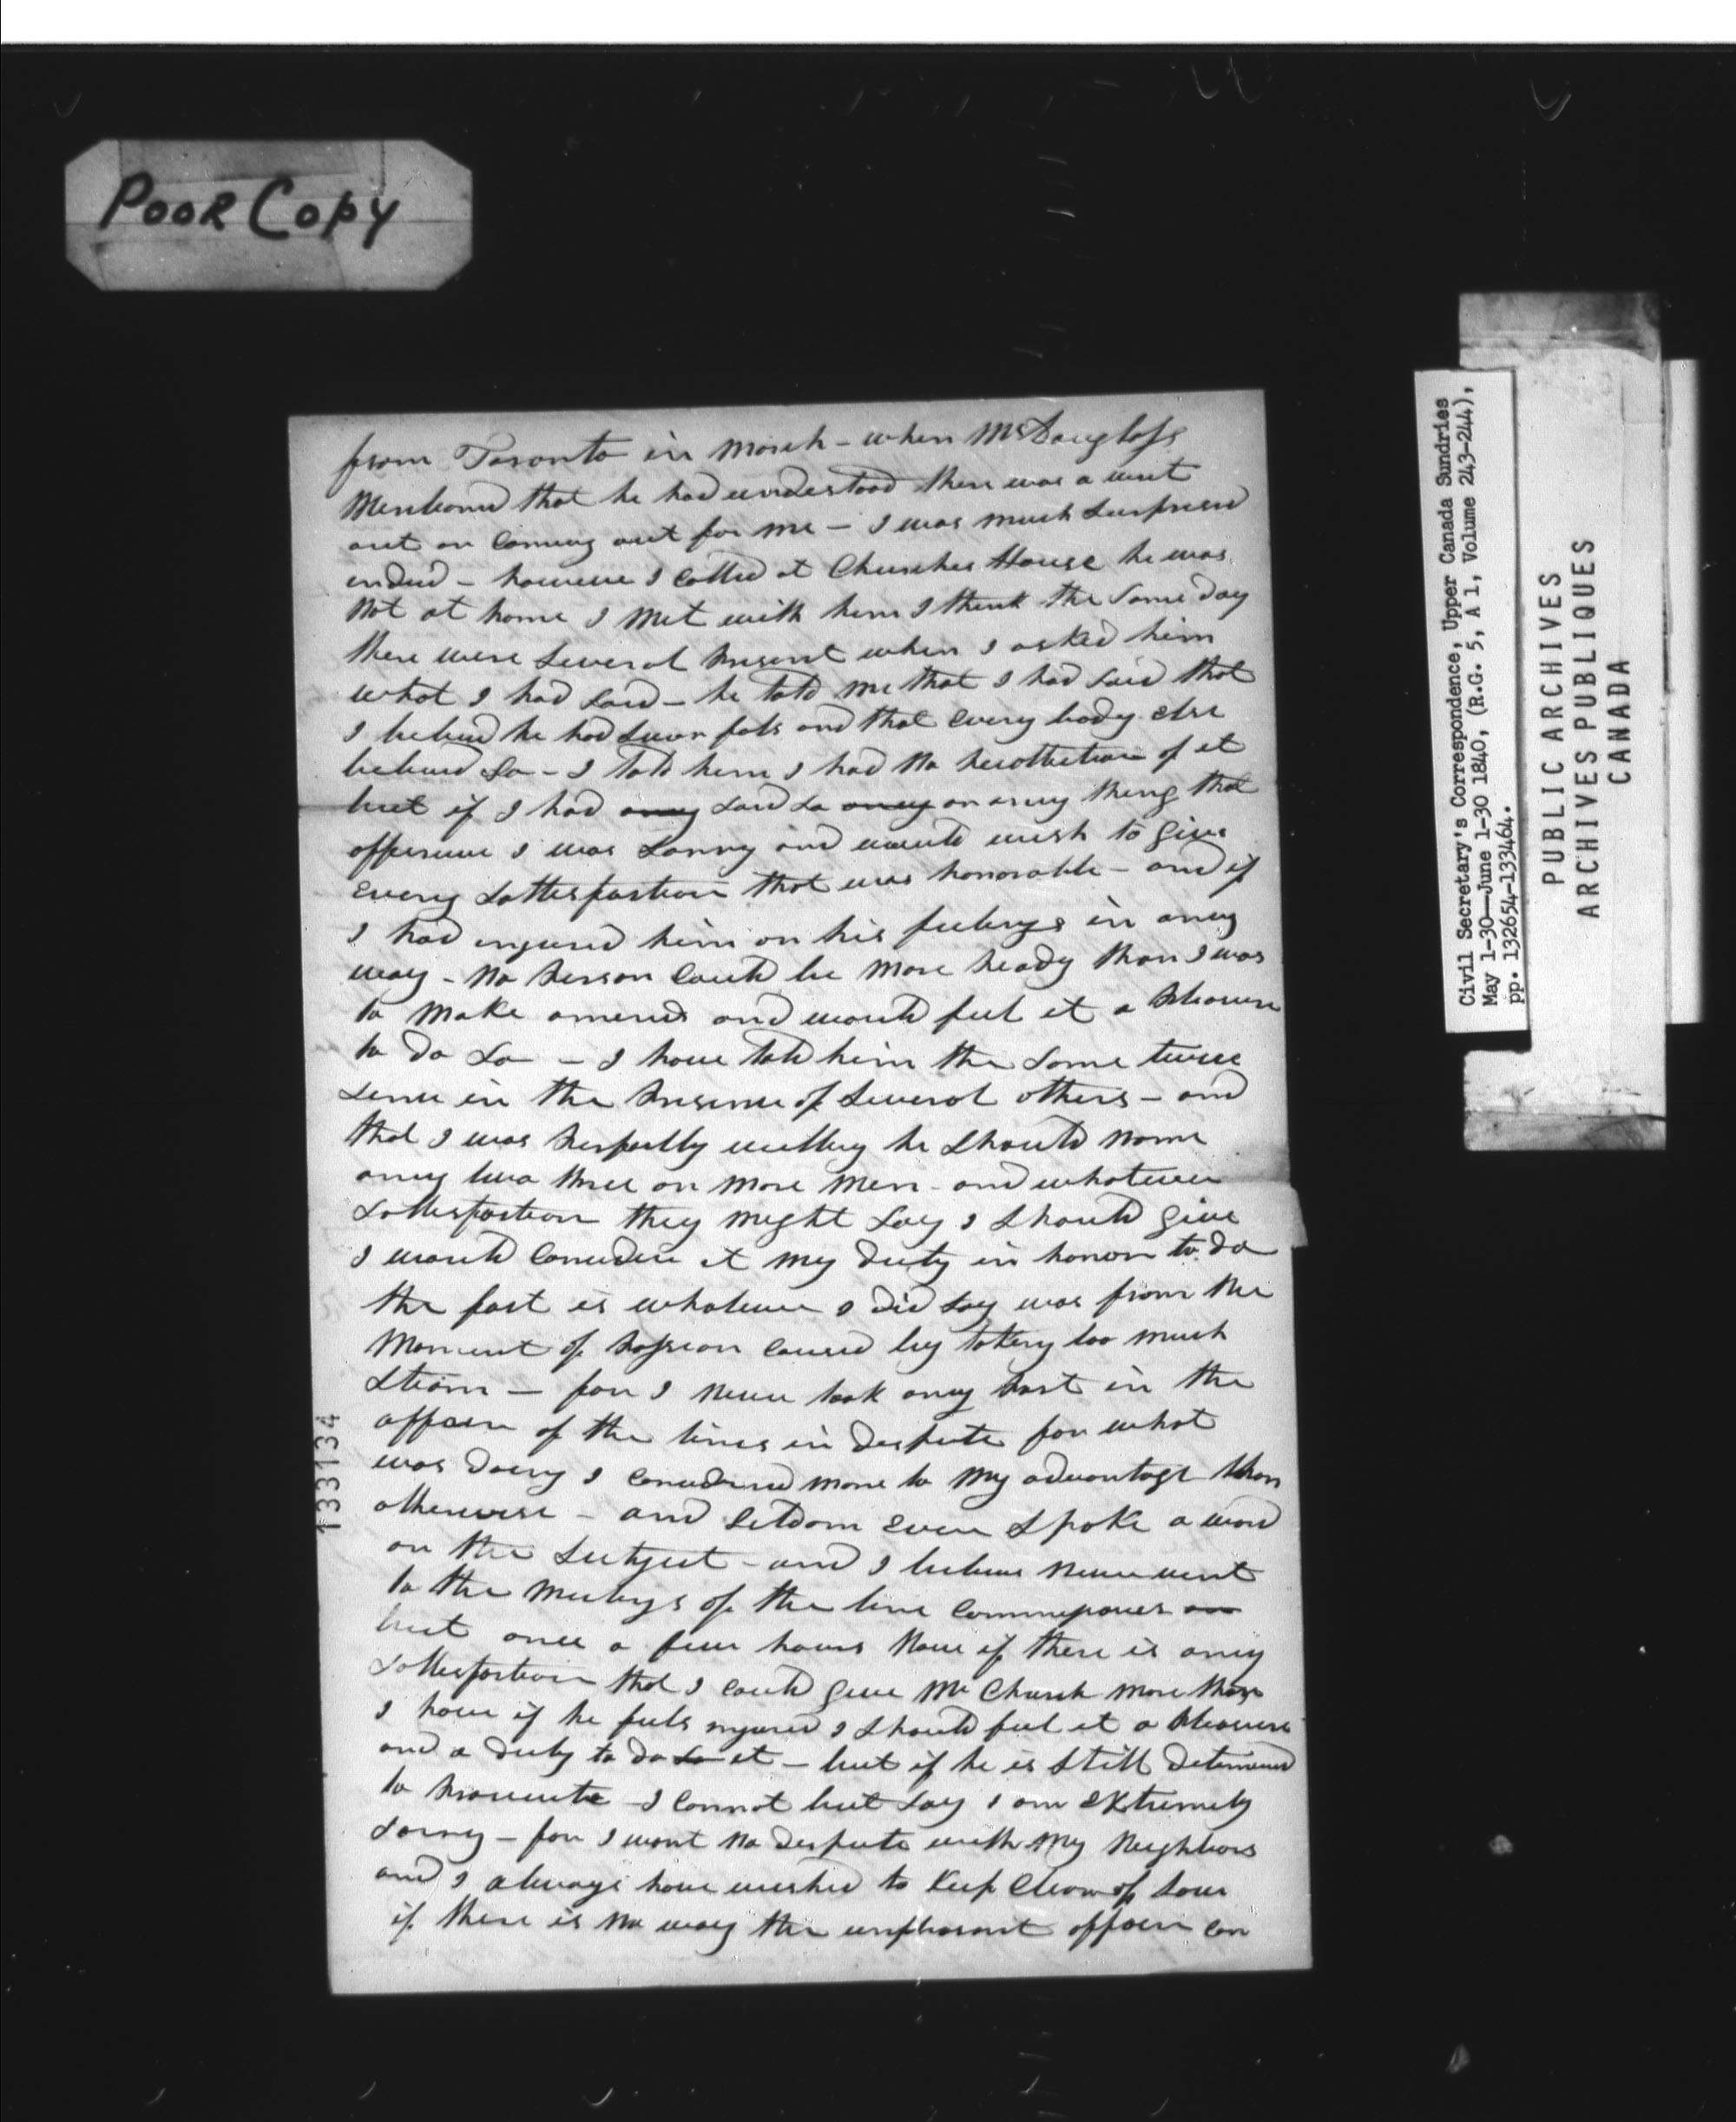 Poor Copy
from Toronto in March - when Mr Douglass
Mentioned that he had understood there was a writ
out or coming out for me - I was much surprised
indeed - however I called at Churches House he was
Not at home I met with him I think the same day
there were several present when I asked him
what I had said - he told me that I had said that
I believed he had sworn fals and that every body else
believed so - I told him I had no recollection of it
but if I had any said so any or any thing that
offensive I was sorry and would wish to give
every sattisfaction that was honorable - and if
I had injured him or his feelings in any
way - no person could be more ready than I was
to make amends and would feel it a pleasure
to do so - I have told him the same twice
sence in the presence of several others - and
that I was perfectly willing he should name
any two three or more men - and whatever
sattisfaction they might say I should give
I would consider it my duty in honor to do
the fact is whatever I did say was from the
moment of passion caused by taking too much
steam - for I never took any part in the
affair of the lines in despute for what
was doing I considered more to my advantage than
otherwise - and seldom ever spoke a word
on the subject - and I believe never went
to the meetings of the line commissioners
but once a few hours Now if there is any
sattisfaction that I could give Mr Church more than
I have if he feels injured I should feel it a pleasure
and a duty to do so it - but if he is still determined
to prosecute - I cannot but say I am extremely
sorry - for I want no despute with my neighbors
and I always have wished to keep clear of law
if there is no way the unpleasant affair can
133134
Civil Secretary's Correspondence, Upper Canada Sundries
May 1-30—June 1-30 1840, (R.G. 5, A 1, Volume 243-244),
pp. 132654-133464.
PUBLIC ARCHIVES
ARCHIVES PUBLIQUES
CANADA